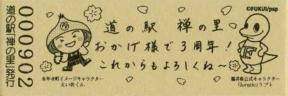 ©FUKUI/psp
道の駅 禅の里発行
000902
道の駅 禅の里
おかげ様で3周年!
これからもよろしくね〜
永平寺町イメージキャラクター
えい坊くん
福井県公式キャラクター
Juratic
ラプト